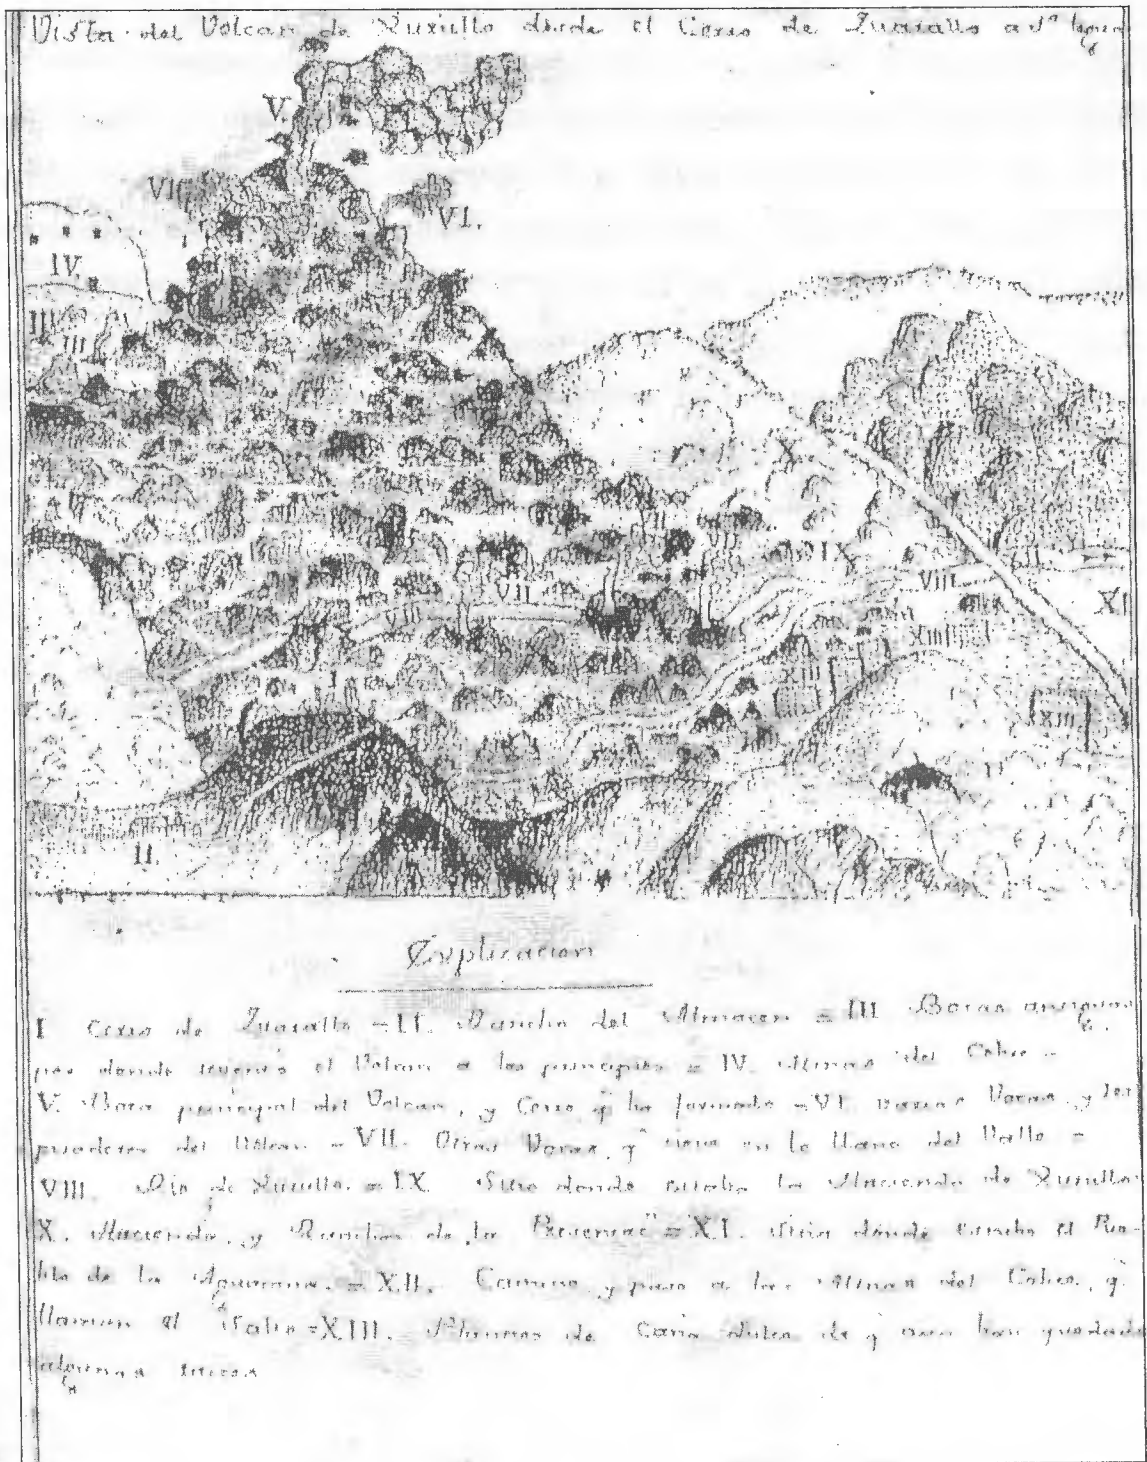 Vista del Volcan de Xurullo desde el Cerro de
V.
VI
VI.
IV.
III
III
X
IX
VII
VIII
VIII
XI
XIII
XIII
XIII
I
II.
Explicacion
I Cerro de = II. Rancho del Almacen = III Bocas antiguas
por donde el Volcan a los principios = IV. Minas del Cobre =
V. Boca principal del Volcan, y Cerro q̃ ha formado = VI. varias Bocas, y
del Volcan = VII. Otras Bocas, q̃ tiene en lo llano del Valle =
VIII. Rio de Xurullo. = IX. Sitio donde estaba la Hacienda de Xurullo
X. Hacienda, y Ranchos de la = XI. Sitio donde estaba el Pue-
blo de la = XII. Camino, y paso a las Minas del Cobre, q̃
llaman el Salto = XIII. de Caña dulce de q̃ aun han quedado
algunas